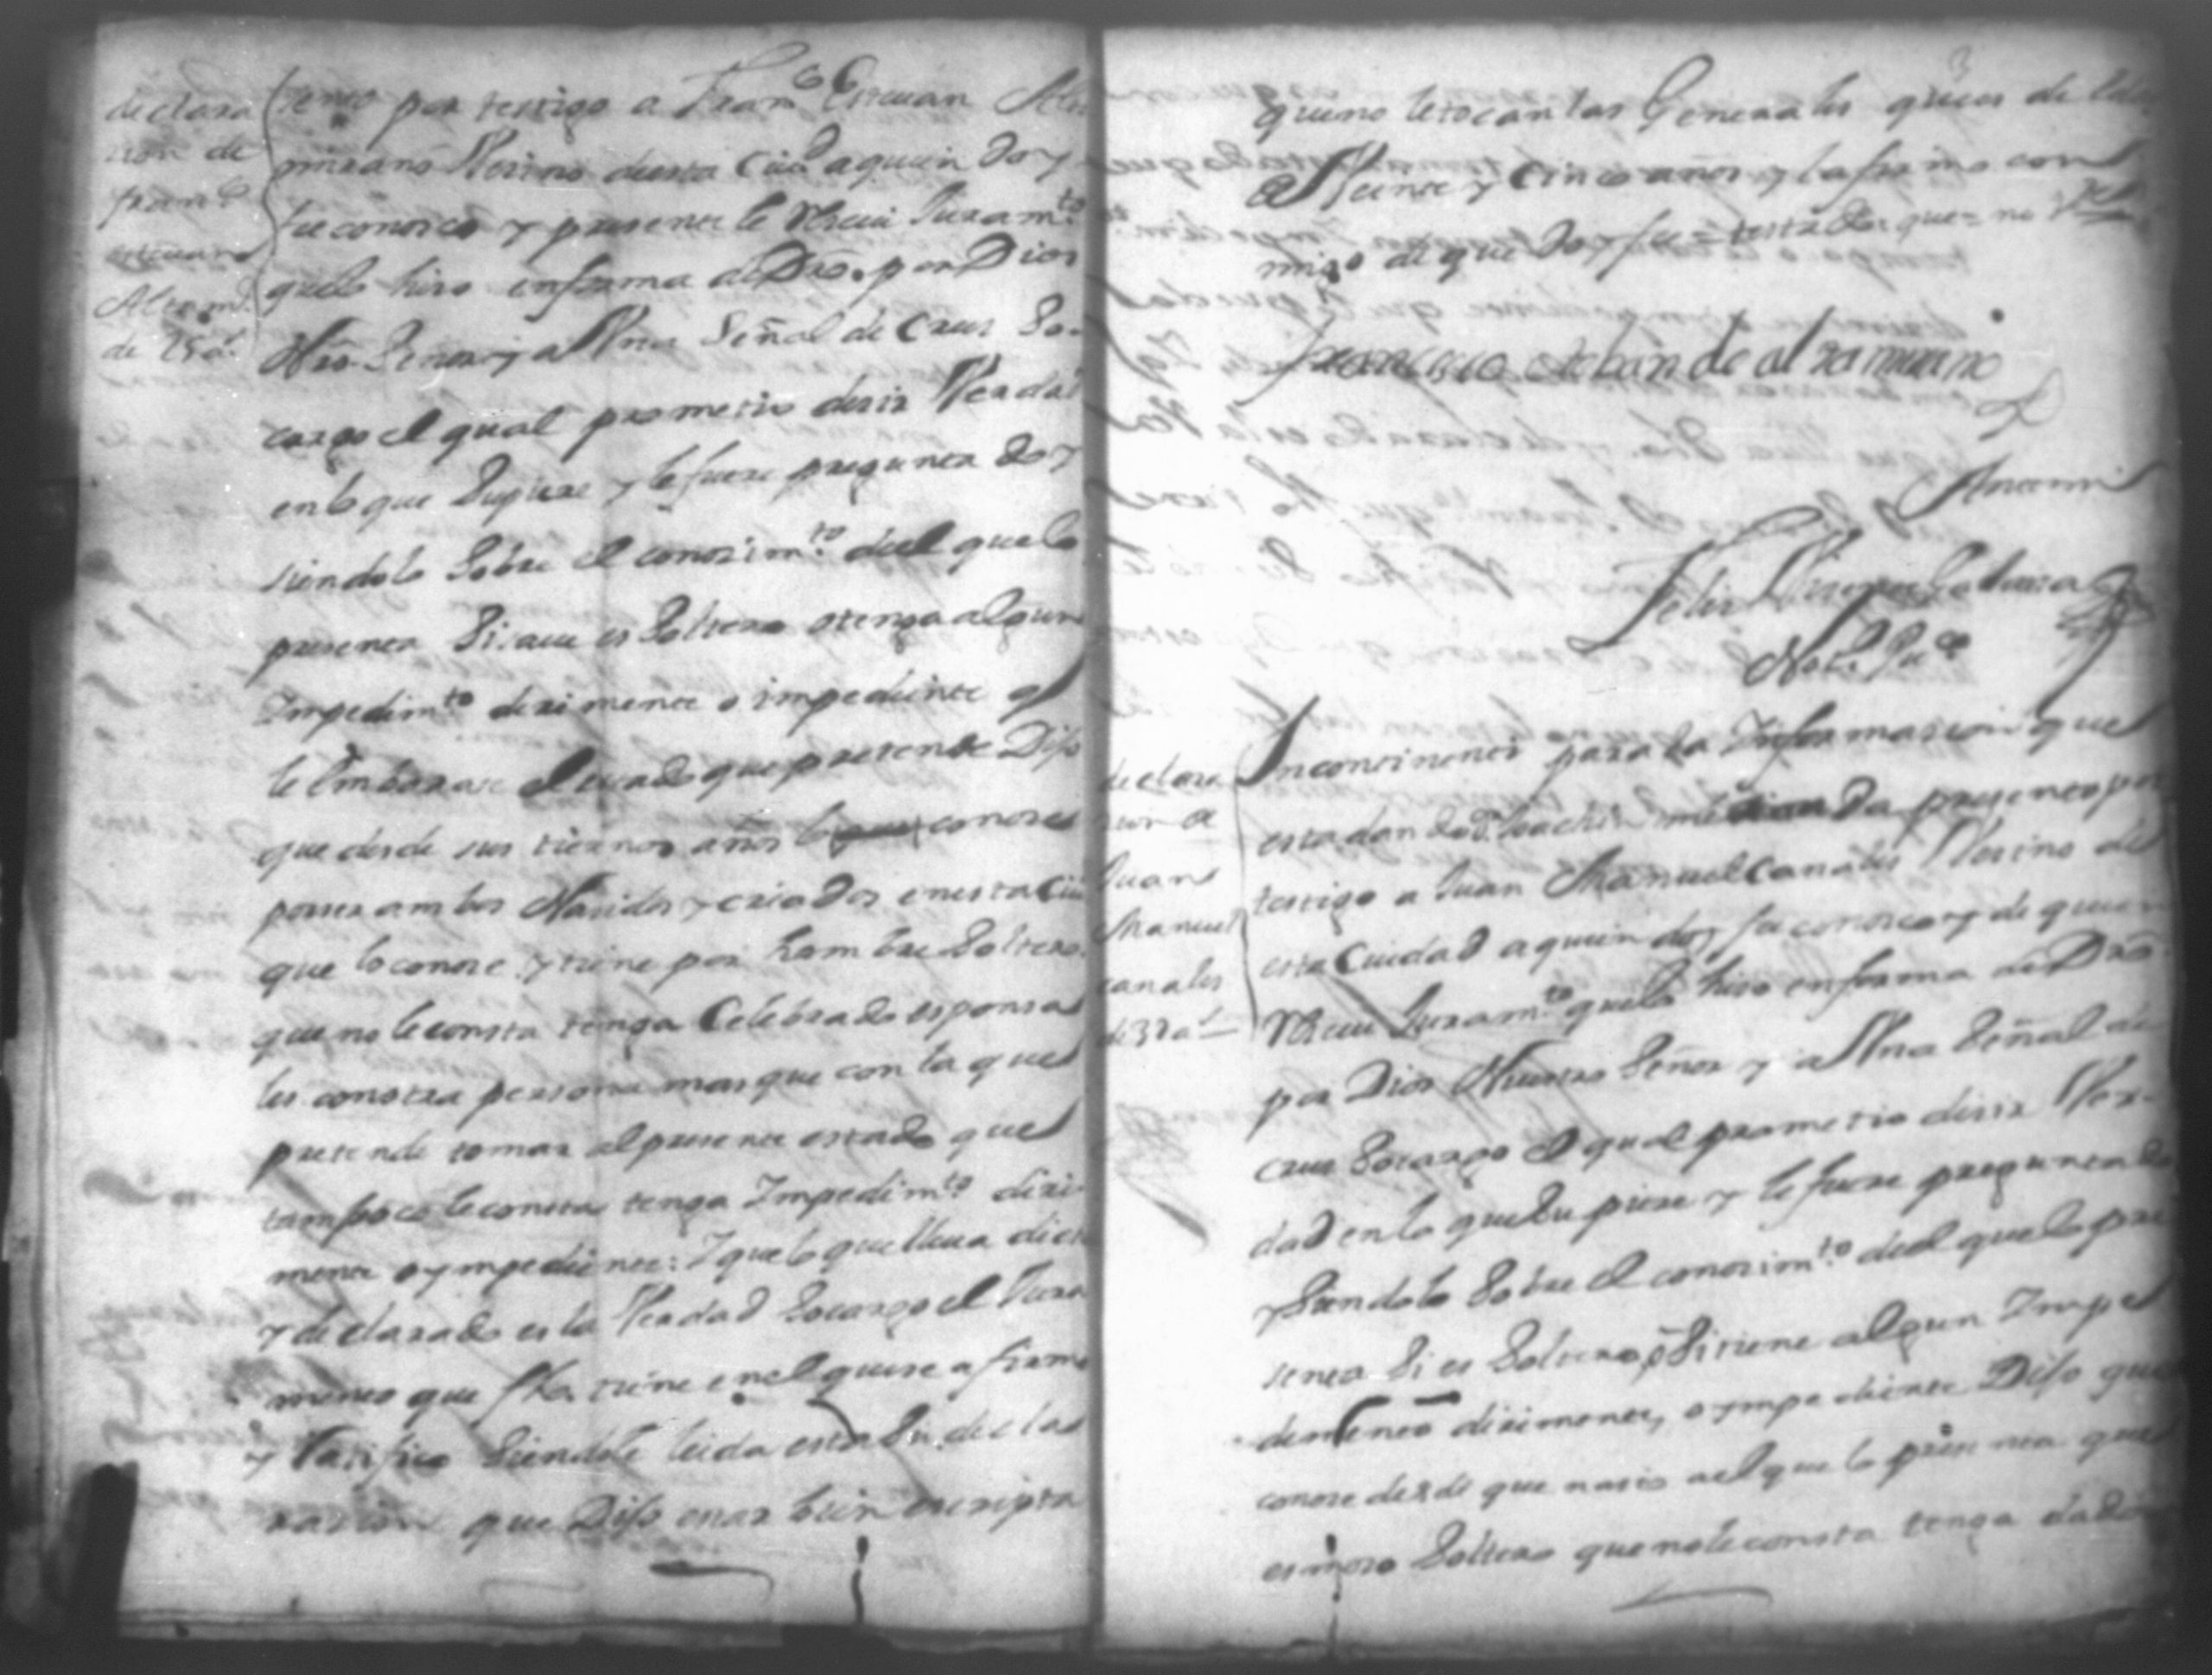 declara
cion de
fran.co
estevan
Altam.o
de 25 a.s
sento por testigo a Fran.co Estevan Alta
mirano Vesino desta Ciu.d aquien doy
fee conosco y presente le Resevi Juram.to
quelo hiso enforma de Dro. por Dios
Nro. Senor y a Vna Señal de Crus So-
cargo el qual prometio desir Verdad
enlo que Supiere y le fuere preguntado y
siendolo Sobre el conosim.to deel quelo
presenta Si aun es Soltero o tenga algun
Impedim.to dirimente o impediente q.
le Embarase el estado que pretende Dijo
que desde sus tiernos años lo conose
por ser ambos Nasidos y criados enesta Ciu
que lo conose y tiene por hombre Soltero
que no le consta tenga Celebrado esponsa
les conotra persona mas que con la que
pretende tomar al presente estado que
tampoco leconsta tenga Impedim.to diri-
mente oympediente: Y quelo que lleva dicho
y declarado es la Verdad Socargo el Jura
mento que fho. tiene enel quese afirmo
y Ratifico Siendole leida esta Su decla
rasion que Dijo estar bien escripta
3
queno letocan las Generales ques de edad
de Veinte y Cinco años y lafirmo con
migo de que doy fee = testado: que = no Vale
francisco esteban de altamirano
Antemi
Felis
Not.o Pu.co
declara
cion de
Juan
Manuel
canales
de 32 a.s
Incontinenti para la Informasion que
esta dando d.n Joachin presento por
testigo a Juan Manuel Canales Vesino de
esta Cuidad aquien doy fee conosco y de quien
Resevi Juram.to quelo hiso enforma de Dro.
por Dios Nuestro Señor y a Vna Señal de
Crus Socargo el qual prometio desir Ver-
dad enlo queSupiere y le fuere preguntado
y Siendolo Sobre el conosim.to deel quelo pre
senta Si es Soltero o Si tiene algun Impe
demento dirimente, oympediente Dijo que
conose desde que nasio ael que lo presenta que
es moso Soltero que nole consta tenga dado